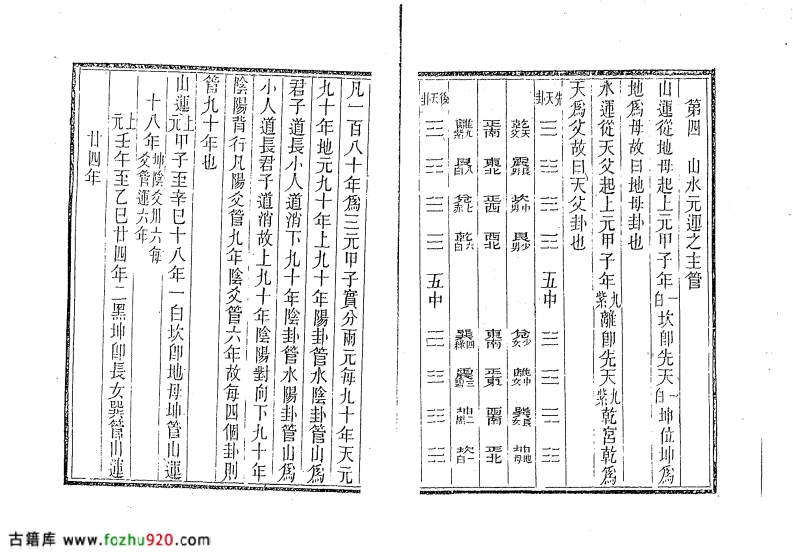 第四 山水元運之主管
山運從地母起上元甲子年一白坎卽先天一白坤位坤爲
地爲母故曰地母卦也
水運從天父起上元甲子年九紫離卽先天九紫乾宮乾爲
天爲父故曰天父卦也
先天卦 五中
乾 震 坎 艮 兌 離 巽 坤
正南 東北 正西 西北 東南 正東 西南 正北
離九紫 艮八白 兌七赤 乾六白 巽四綠 震三碧 坤二黑 坎一白
後天卦 五中
凡一百八十年爲三元甲子實分兩元每九十年天元
九十年地元九十年上九十年陽卦管水陰卦管山爲
君子道長小人道消下九十年陰卦管水陽卦管山爲
小人道長君子道消故上九十年陰陽對向下九十年
陰陽背行凡陽爻管九年陰爻管六年故每四個卦則
管九十年也
山運上元甲子至辛巳十八年一白坎卽地母坤管山運
十八年坤陰爻卅六每爻管運六年
上元壬午至乙巳廿四年二黑坤卽長女巽管山運
廿四年
古籍库 www.fozhu920.com